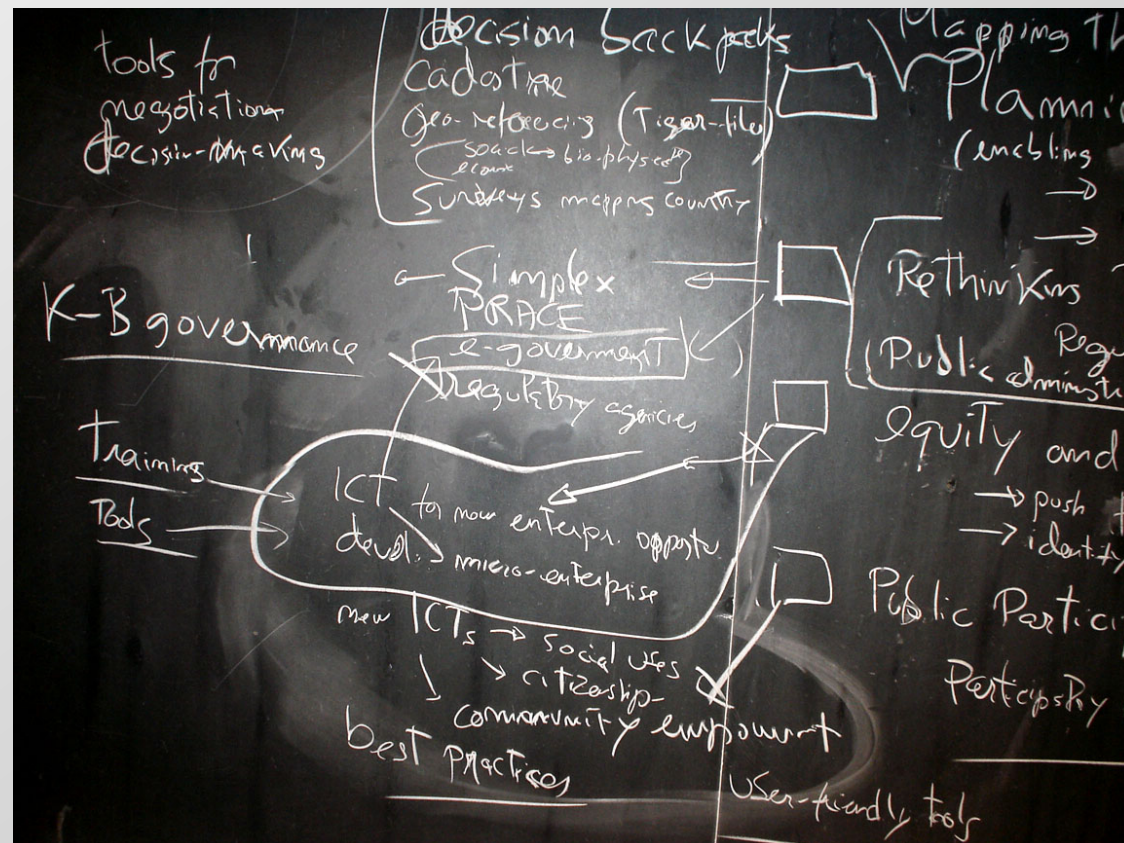 tools for
negotiation
decision-making
decision backpacks
Cadastre
Geo-referencing (Tiger-file)
bio-physical
Surveys mapping country
Simplex
PRACE
e-goverment
regulatory agencies
K-B governance
Training
Tools
ICT for new enterpr. opportu
devel. micro-enterprise
new ICTs → social uses
→ citizenship
community empowrment
best practices
user-friendly tools
Mapping Th
Planni
(enabling
→
→
Rethinking
Regu
(Public administr
equity and
→ push
→ identity
Public Partici
Participatory